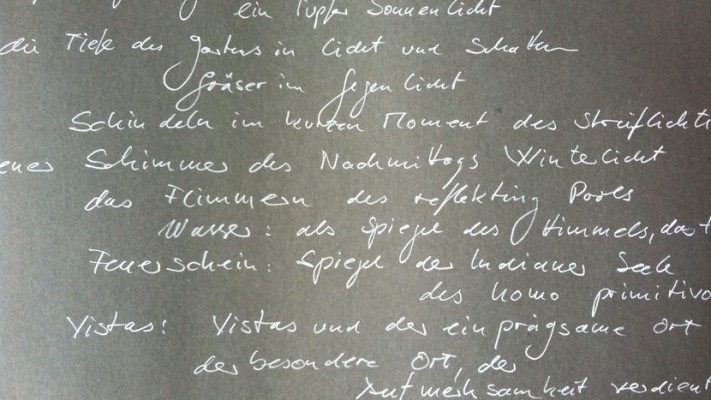 ein Tupfer Sonnenlicht
die Tiefe des Gartens in Licht und Schatten
Gräser im Gegenlicht
Schindeln im kurzen Moment des Streiflichts
Schimmer des Nachmittags Winterlicht
das Flimmern des reflekting Pools
Wasser: als Spiegel des Himmels, das
Feuerschein: Spiegel der Indianer Seele
des homo primitivo
Vistas: Vistas und der einprägsame Ort
der besondere Ort, der
Aufmerksamkeit verdient